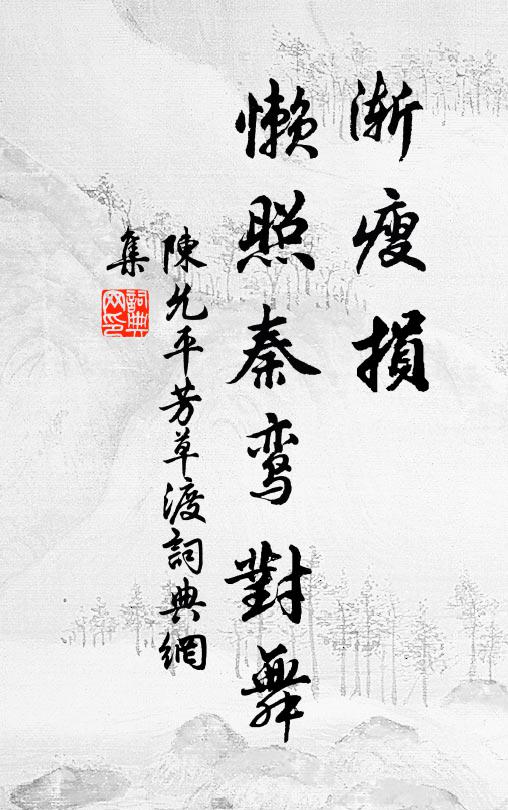 渐瘦損
懒照秦鸾對舞
陳允平芳草渡詞典網
集
詞典网印